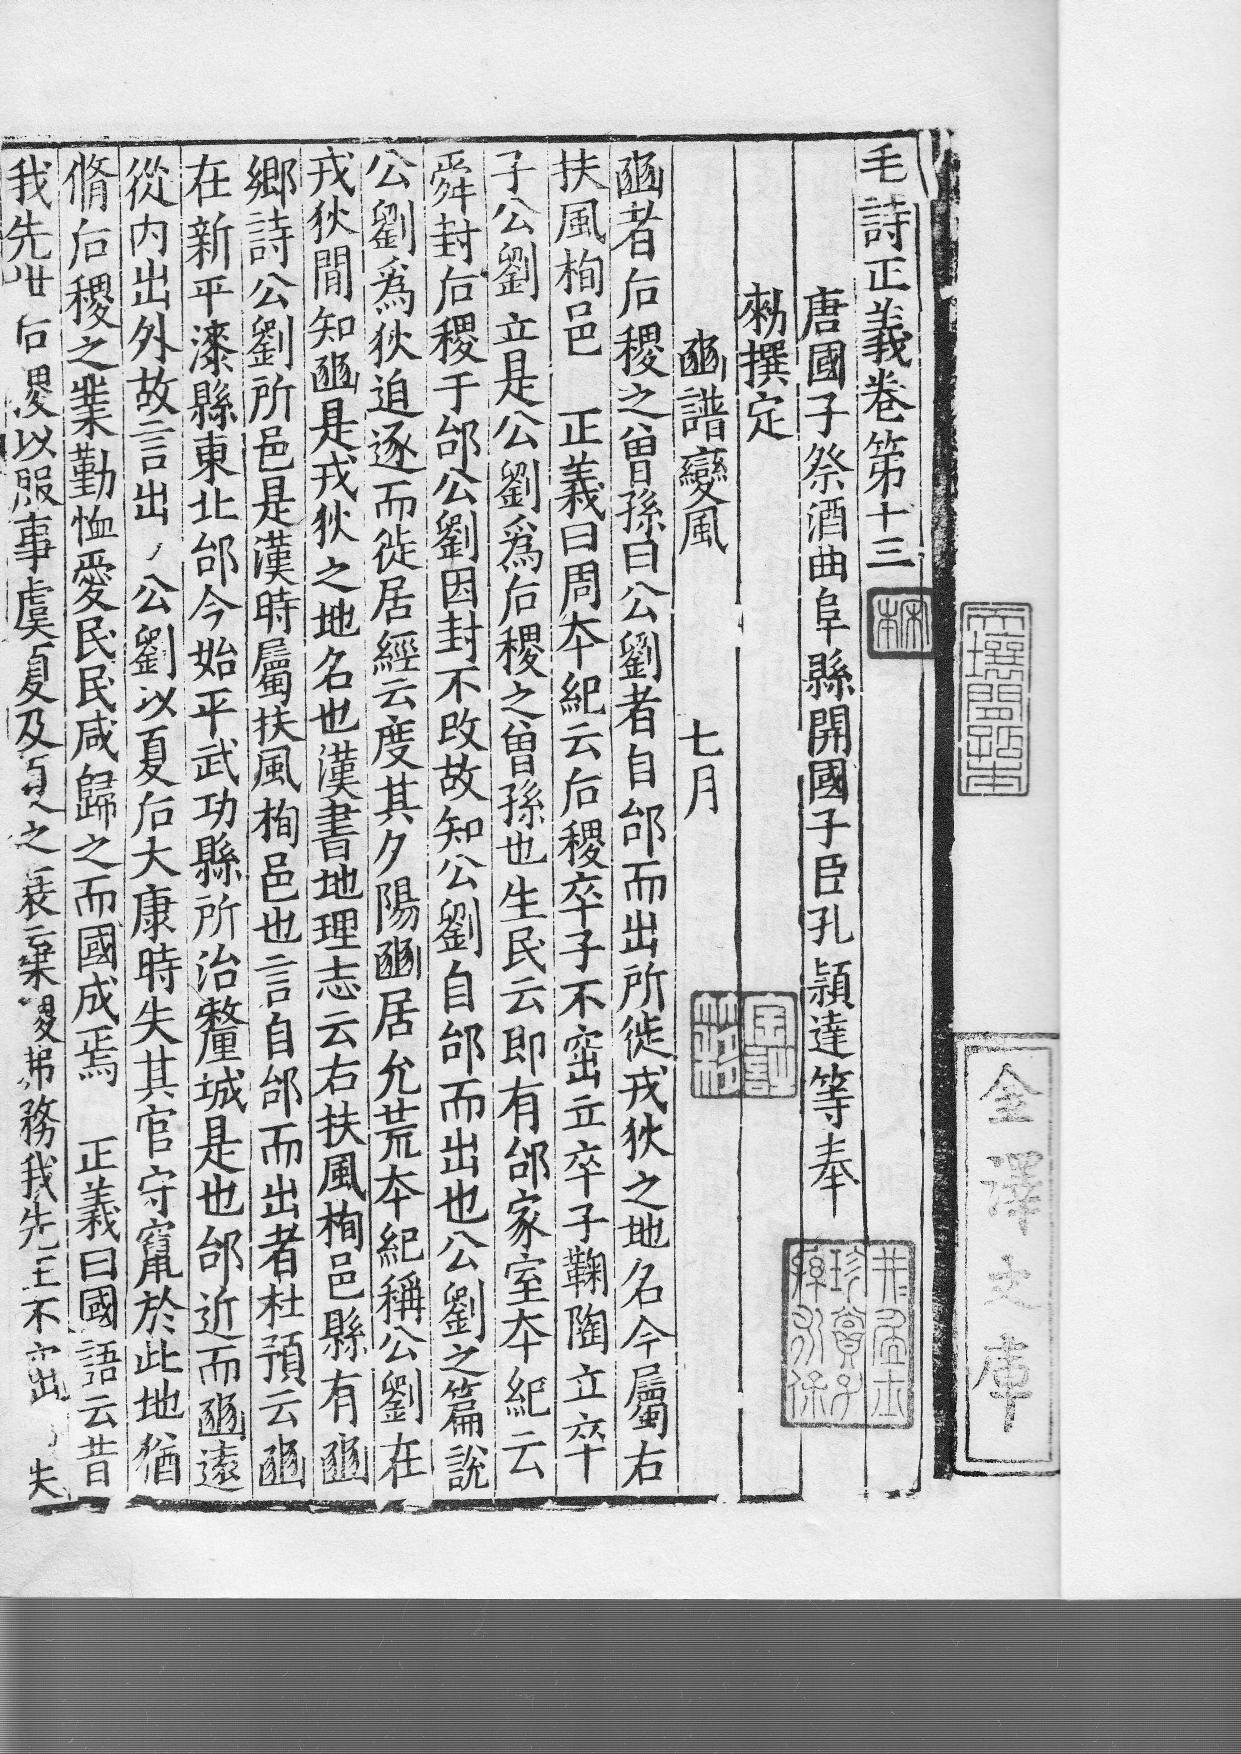 毛詩正義卷第十三
唐國子祭酒曲阜縣開國子臣孔穎達等奉
勑撰定
豳譜變風　七月
豳者后稷之曾孫曰公劉者自邰而出所徙戎狄之地名今屬右
扶風栒邑　正義曰周本紀云后稷卒子不窋立卒子鞠陶立卒
子公劉立是公劉爲后稷之曾孫也生民云即有邰家室本紀云
舜封后稷于邰公劉因封不改故知公劉自邰而出也公劉之篇說
公劉爲狄迫逐而徙居經云度其夕陽豳居允荒本紀稱公劉在
戎狄間知豳是戎狄之地名也漢書地理志云右扶風栒邑縣有豳
鄉詩公劉所邑是漢時屬扶風栒邑也言自邰而出者杜預云豳
在新平漆縣東北邰今始平武功縣所治釐城是也邰近而豳遠
從内出外故言出　公劉以夏后大康時失其官守竄於此地猶
脩后稷之業勤恤愛民民咸歸之而國成焉　正義曰國語云昔
我先世后稷以服事虞夏及夏之衰棄稷弗務我先王不窋　失
金澤文庫